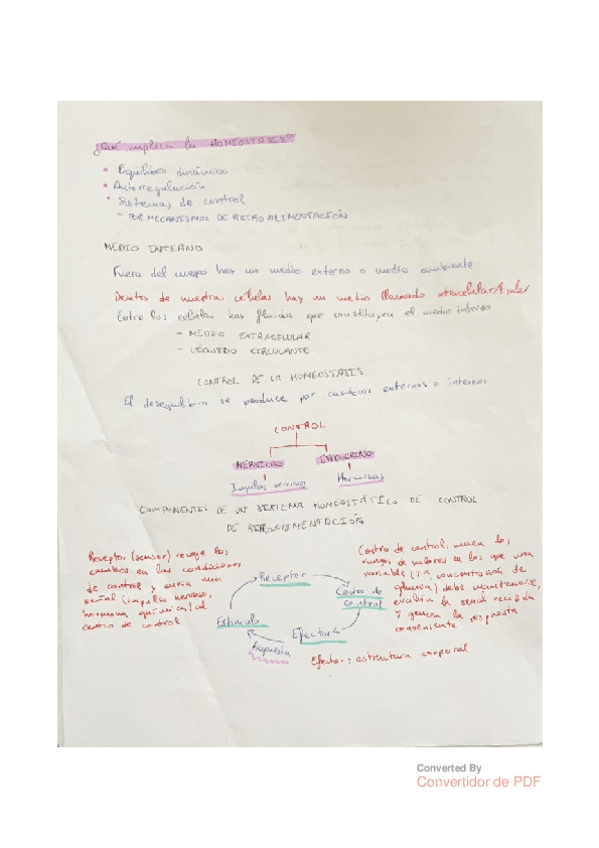 ¿Qué implica la HOMEOSTASIS?
* Equilibrio dinámico
* Autorregulación
* Sistemas de control
- POR MECANISMOS DE RETROALIMENTACIÓN
MEDIO INTERNO
Fuera del cuerpo hay un medio externo o medio ambiente
Dentro de nuestras células hay un medio llamado intracelular
Entre las células hay fluidos que constituyen el medio interno
- MEDIO EXTRACELULAR
- LÍQUIDO CIRCULANTE
CONTROL DE LA HOMEOSTASIS
El desequilibrio se produce por cambios externos o internos
CONTROL
NERVIOSO ENDOCRINO
Impulsos nerviosos Hormonas
COMPONENTES DE UN SISTEMA HOMEOSTÁTICO DE CONTROL
DE RETROALIMENTACIÓN
Receptor (sensor) recoge los
cambios en las condiciones
de control y envía una
señal (impulso nervioso,
hormona química) al
centro de control
Centro de control: marca los
rangos de valores en los que una
variable (Tª, concentración de
glucosa) debe mantenerse,
evalúa la señal recibida
y genera la respuesta
conveniente
Receptor
Centro de
control
Efector
Respuesta
Estímulo
Efector: estructura corporal
Converted By
Convertidor de PDF